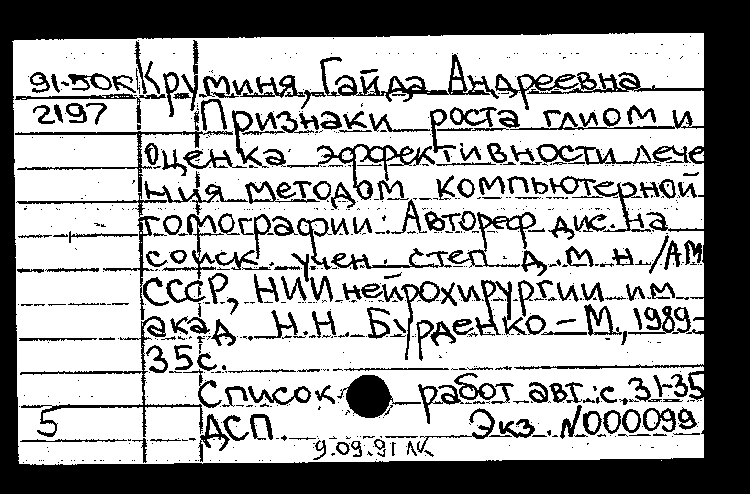 91-50К Круминя, Гайда Андреевна.
2197 Признаки роста глиом и
оценка эффективности лече
ния методом компьютерной
томографии: Автореф. дис. на
соиск. учен. степ. д.м.н. /АМ
СССР, НИИ нейрохирургии им
акад Н.Н. Бурденко - М., 1989-
35с.
Список работ авт.: с. 31-35
5 ДСП. Экз. N000099
9.09.91